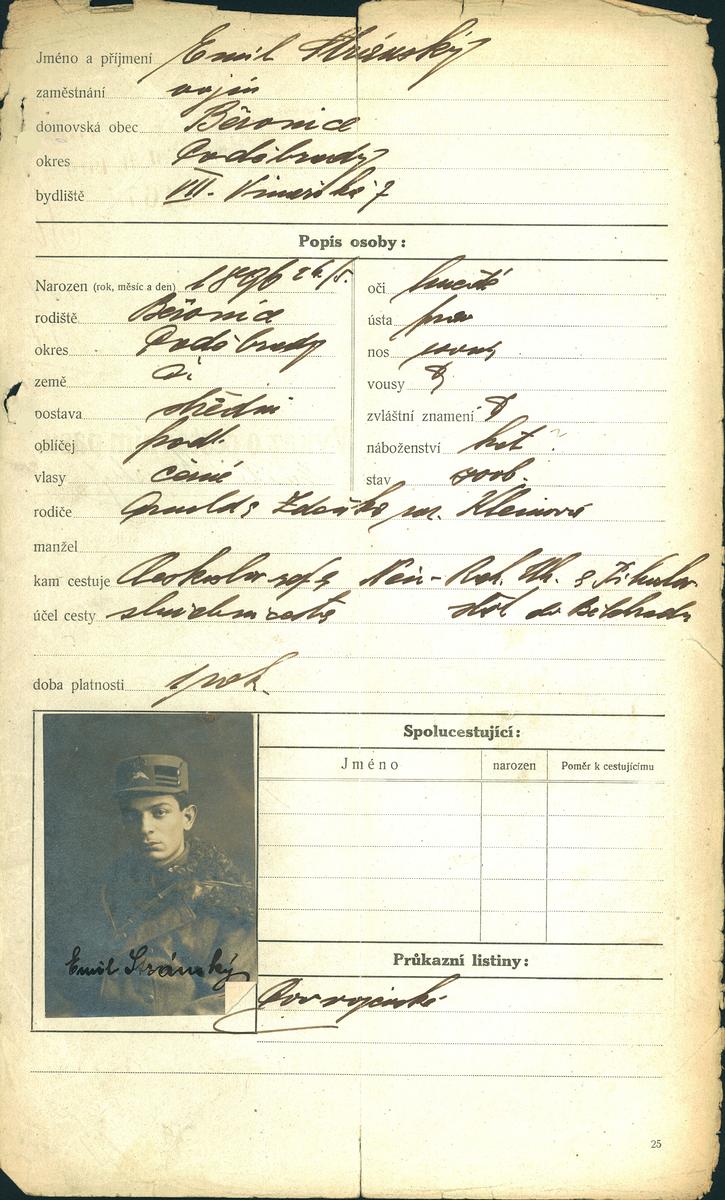 Jméno a příjmení Emil Stránský
zaměstnání vojín
domovská obec Běronice
okres Poděbrady
bydliště VIII. 7
Popis osoby:
Narozen (rok, měsíc a den) 1896 26/5.
rodiště Běronice
okres Poděbrady
země Č.
postava střední
obličej podl.
vlasy černé
oči hnědé
ústa prav
nos rovný
vousy
zvláštní znamení
náboženství
stav svob.
rodiče Arnold Zdeňka roz. Kleinová
manžel
kam cestuje
účel cesty
doba platnosti 1 rok.
Spolucestující:
Jméno narozen Poměr k cestujícímu
Emil Stránský
Průkazní listiny:
vojenské
25